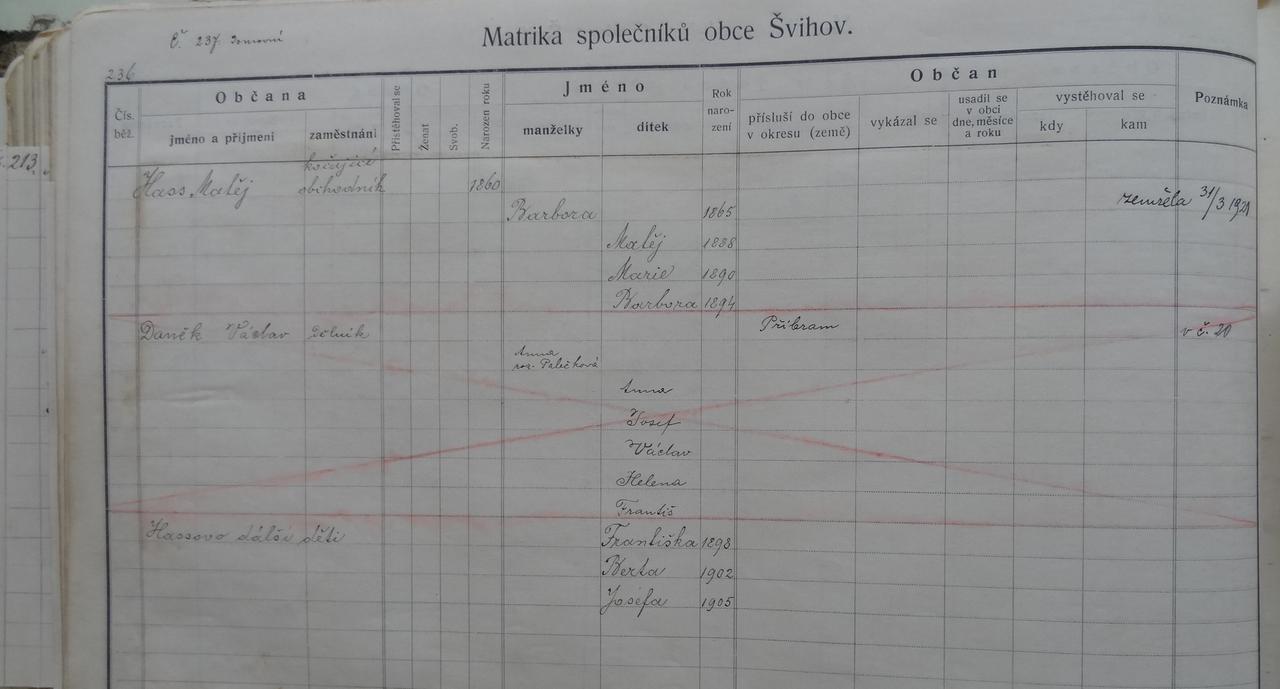 Č 237
Matrika společníků obce Švihov.
236
213.
Čís. běž.
Občana
jméno a příjmení
zaměstnání
Přistěhoval se
Ženat
Svob.
Narozen roku
Jméno
manželky
dítek
Rok naro- zení
Občan
přísluší do obce v okresu (země)
vykázal se
usadil se v obci dne, měsíce a roku
vystěhoval se
kdy
kam
Poznámka
kočující
Hass Matěj obchodník 1860
Barbora 1865 zemřela 31/3 1921
Matěj 1888
Marie 1890
Barbora 1894
Daněk Václav dělník Příbram v č. 20
Anna
roz. Palečková
Anna
Josef
Václav
Helena
Františ
Hassovo dálší děti Františka 1898
Berta 1902
Josefa 1905